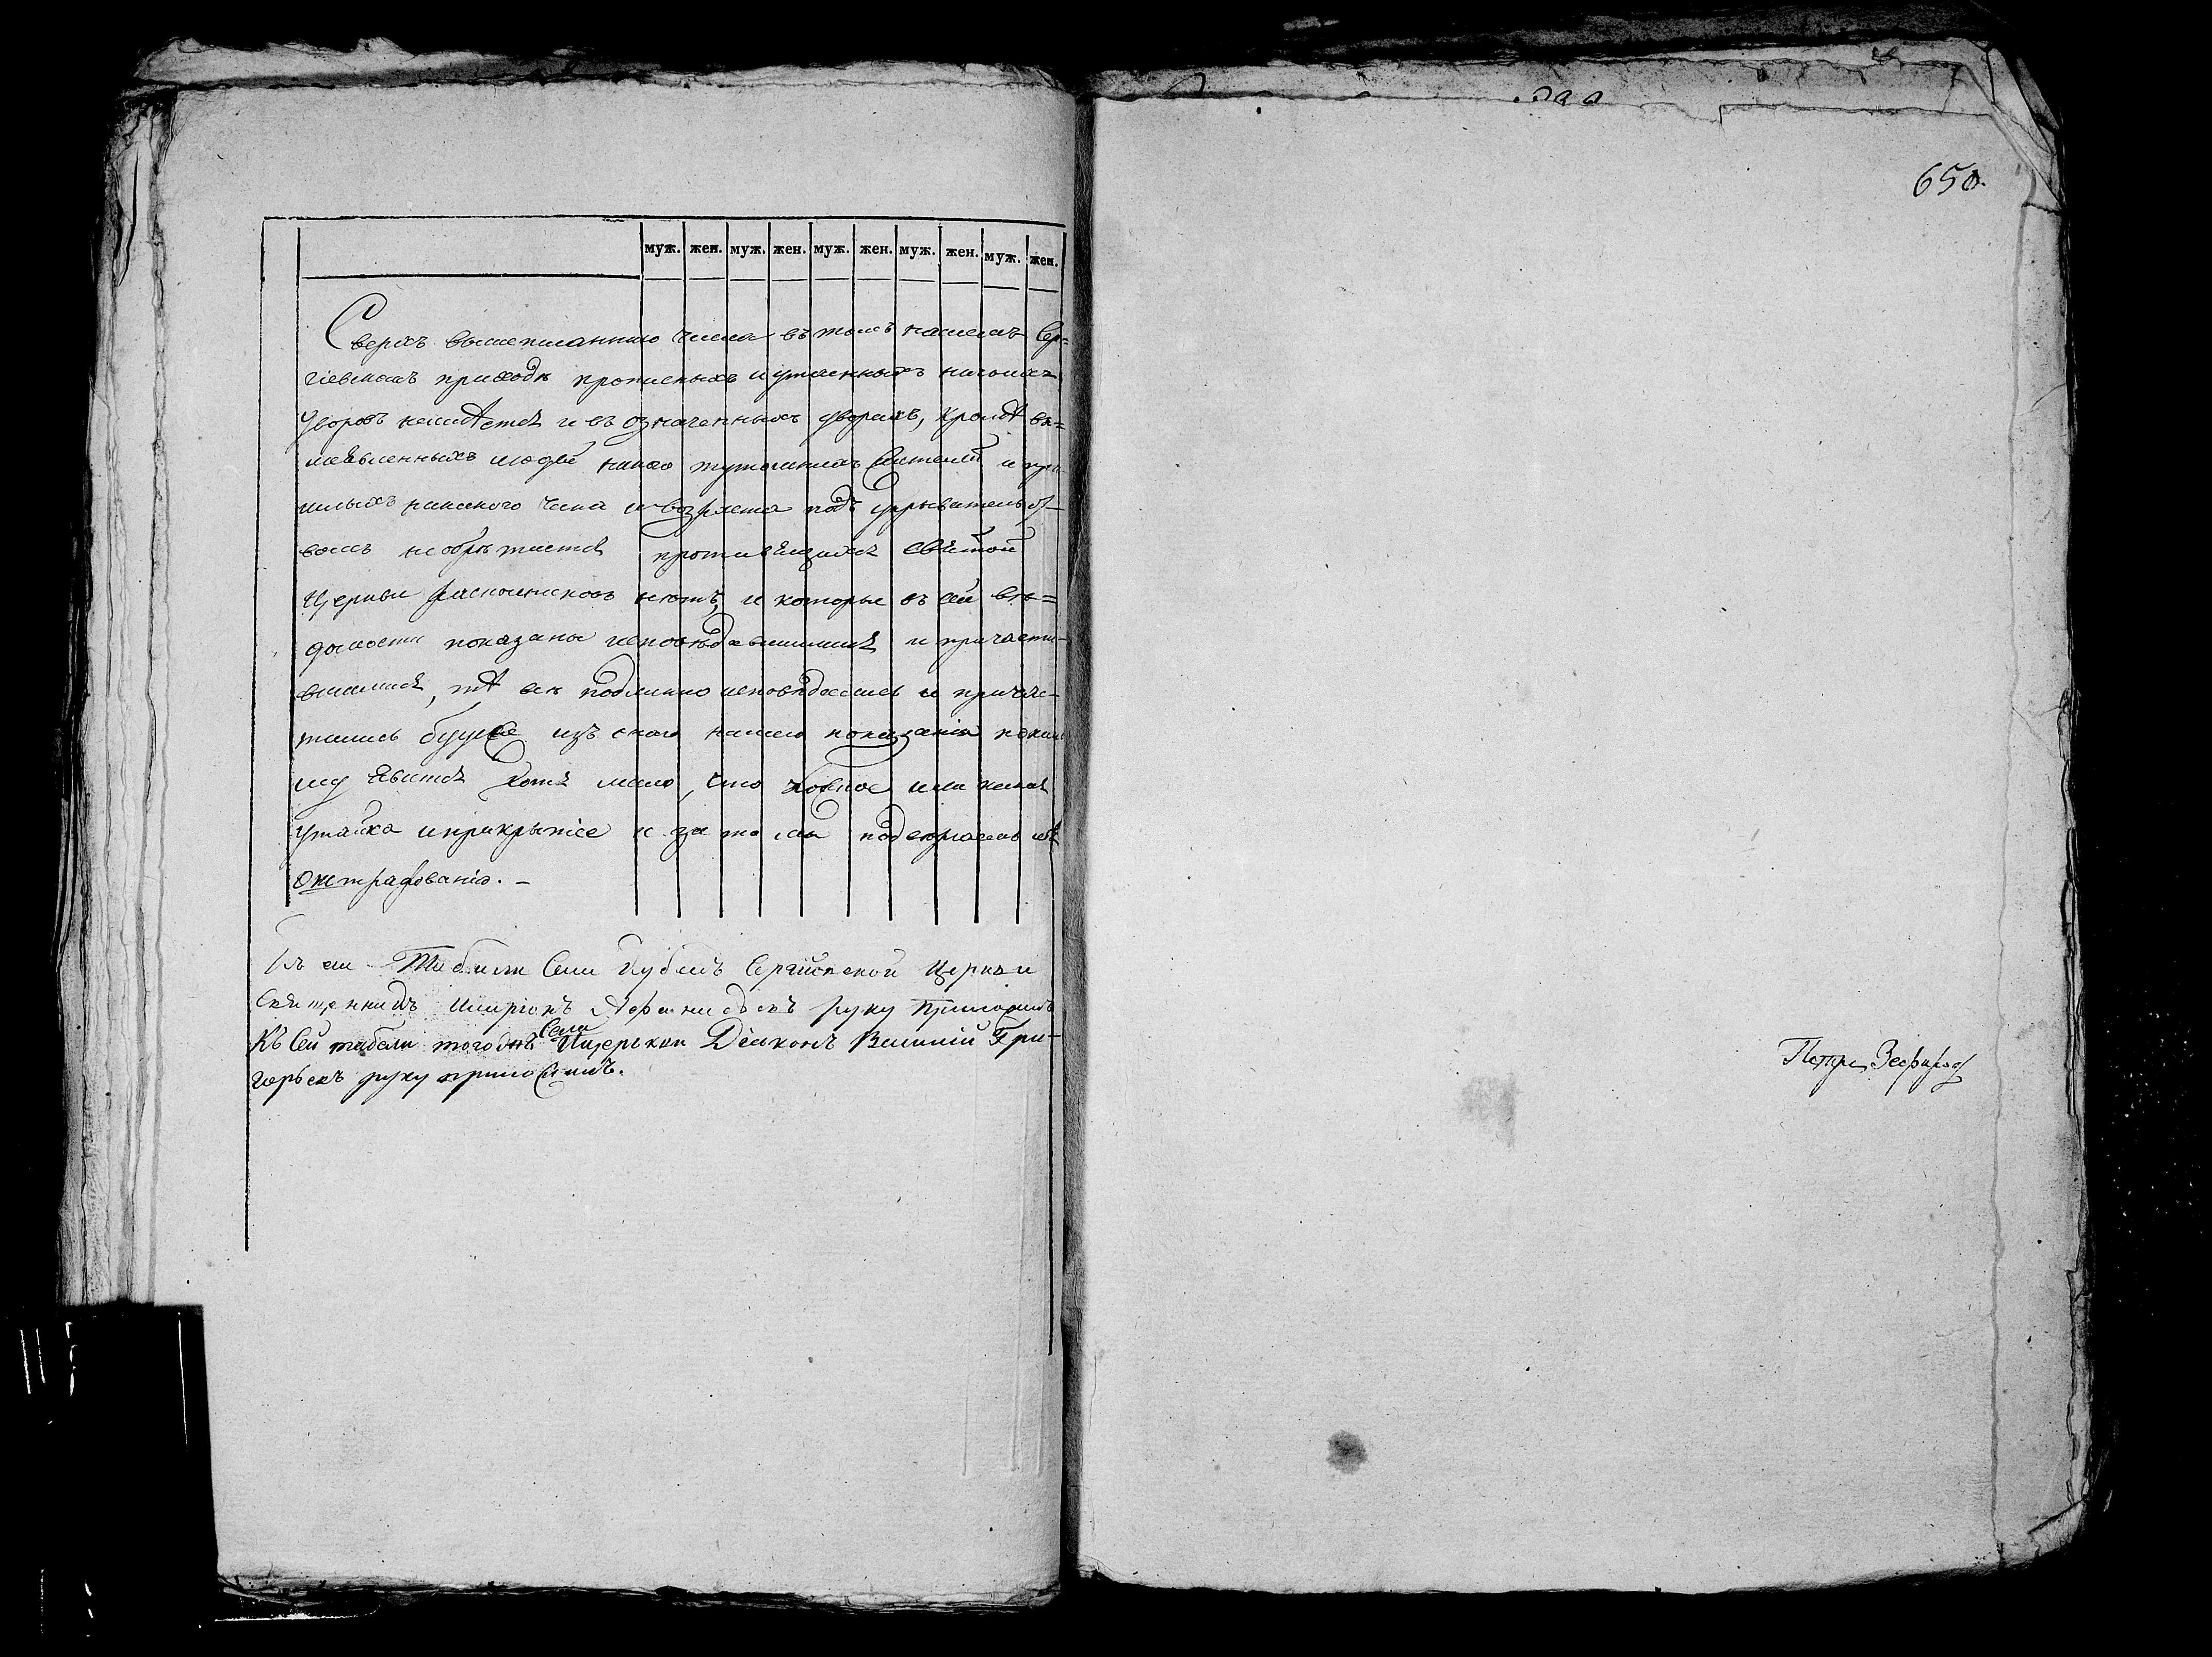 муж. жен. муж. жен. муж. жен. муж. жен. муж. жен.
Сверхъ вышеписаннаго числа въ томъ нашемъ Сер=
гіевскомъ приходѣ прописныхъ и утаенныхъ никакихъ
дворовъ неимѣется и въ означенныхъ дворахъ, кромѣ въ=
явленныхъ людей какъ тутошнихъ жителей и при
шлыхъ никакого чина и возраста подъ укрывательст
вомъ необрѣтается противящихся святой
Церкви раскольниковъ нѣтъ, и которые въ сей вѣ=
домости показаны исповѣдавшимися и причасти-
вшимися, тѣ всѣ подлинно исповѣдались и причас-
тились буде изъ сего нашего показанія покаму
явится хотя мало, что ложное или какая
утайка и прикрытіе и за то мы подвергаемъ себя
оштрафованію. –
Къ сей Табели Села Сергіевской Церкви
Священникъ Иларіонъ руку приложилъ
Къ сей табели тогожъ Села Церкви Діаконъ Василій Гри-
горьевъ руку приложилъ.
650.
Петръ Зефировъ